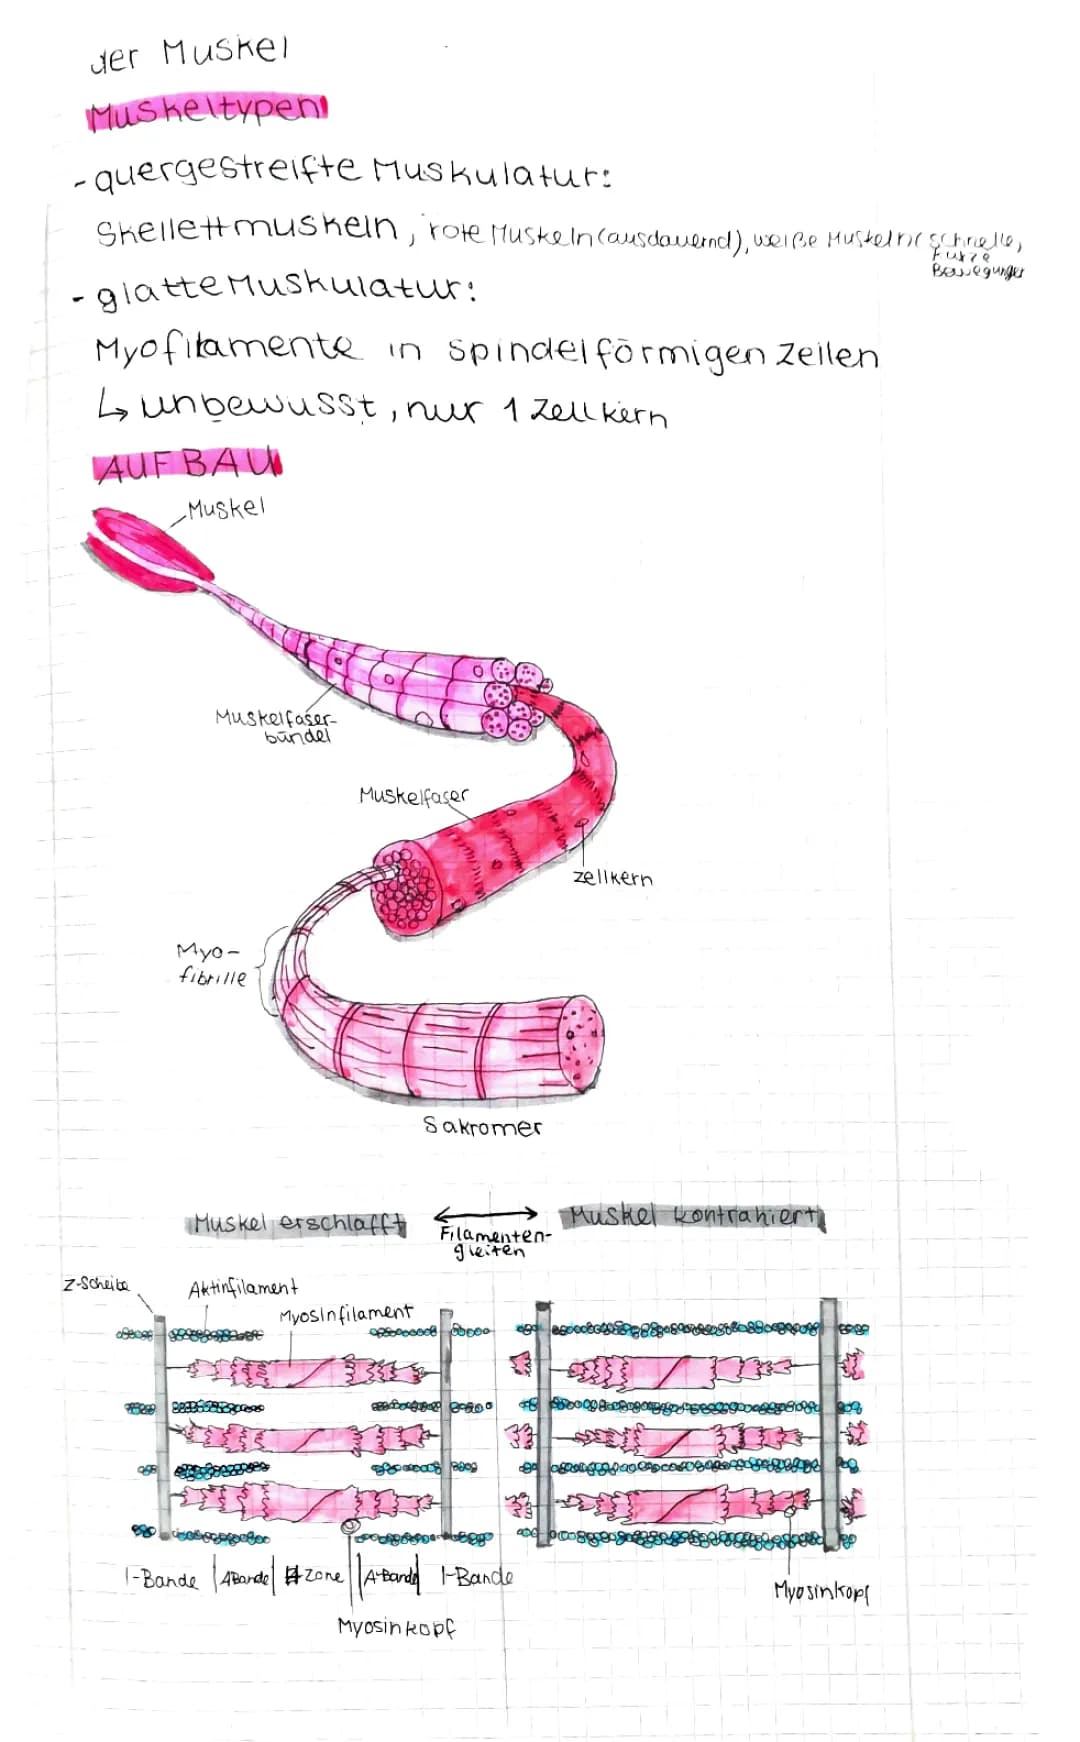 der Muskel
Muskeltypen
- quergestreifte Muskulatur:
Skelettmuskeln, rote Muskeln (ausdauernd), weiße Muskeln (schnelle,
kurze
Bewegungen
- glatte Muskulatur:
Myofilamente in spindelförmigen Zellen
↳ unbewusst, nur 1 Zellkern
AUFBAU
Muskel
Muskelfaser-
bündel
Muskelfaser
Zellkern
Myo-
fibrille
Sakromer
Muskel erschlafft ↔ Muskel kontrahiert
Filamenten-
gleiten
Z-Scheibe
Aktinfilament
Myosinfilament
I-Bande | A Bande | H-Zone || A-Bande | I-Bande
Myosinkopf
Myosinkopf